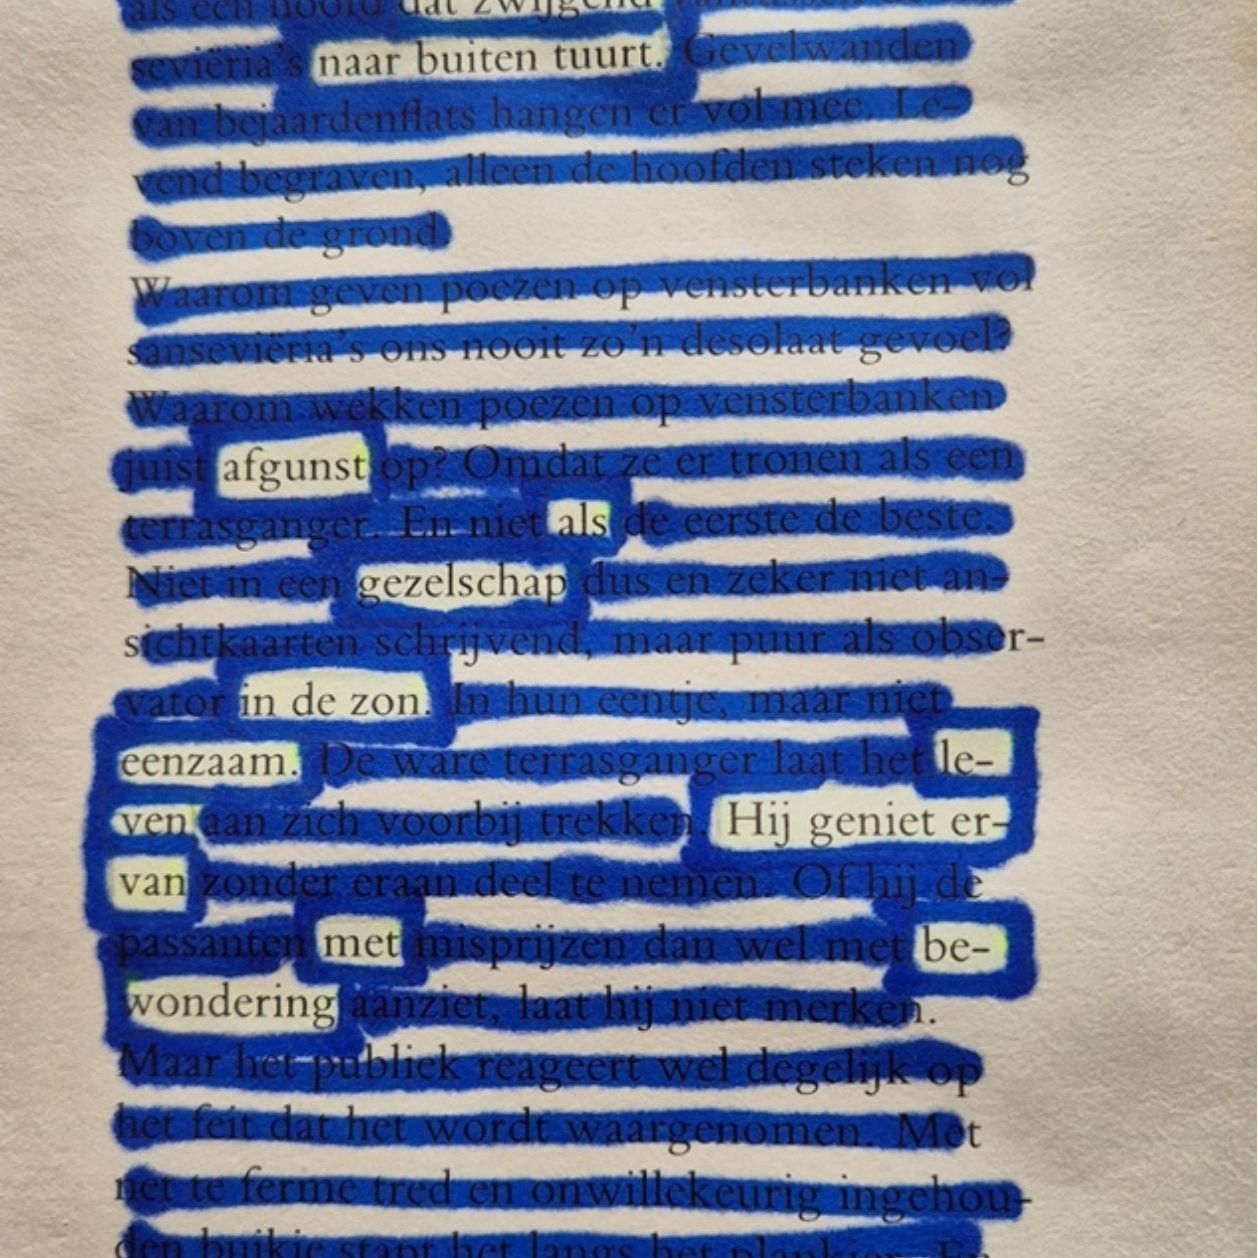 als een hoofd dat zwijgend
seviëria's naar buiten tuurt. Gevelwanden
van bejaardenflats hangen er vol mee. Le-
vend begraven, alleen de hoofden steken nog
boven de grond
Waarom geven poezen op vensterbanken vol
sanseviëria's ons nooit zo'n desolaat gevoel?
Waarom wekken poezen op vensterbanken
juist afgunst op? Omdat ze er tronen als een
terrasganger. En niet als de eerste de beste.
Niet in een gezelschap dus en zeker niet an-
sichtkaarten schrijvend, maar puur als obser-
vator in de zon. In hun eentje, maar niet
eenzaam. De ware terrasganger laat het le-
ven aan zich voorbij trekken. Hij geniet er-
van zonder eraan deel te nemen. Of hij de
passanten met misprijzen dan wel met be-
wondering aanziet, laat hij niet merken.
Maar het publiek reageert wel degelijk op
het feit dat het wordt waargenomen. Met
net te ferme tred en onwillekeurig ingehou-
den buikje stapt het langs het plankier. En